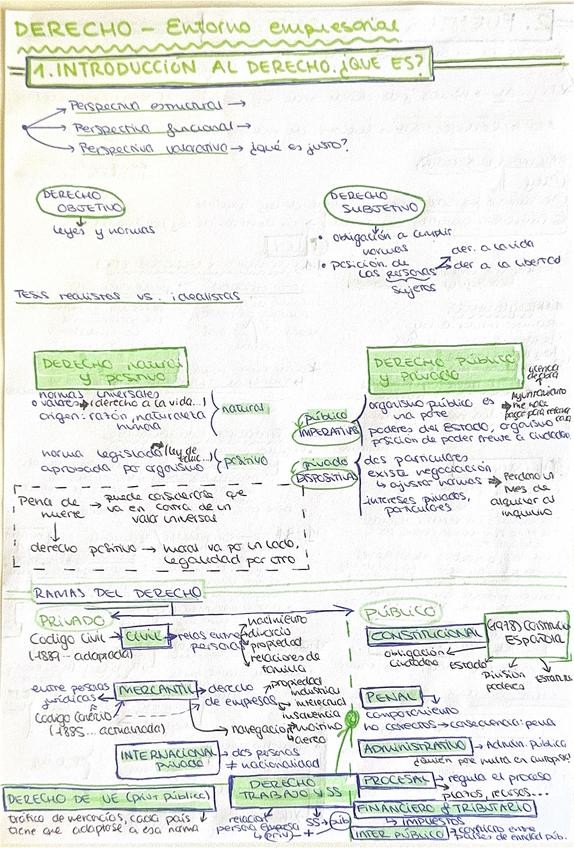 DERECHO - Entorno empresarial
1. INTRODUCCIÓN AL DERECHO. ¿QUÉ ES?
Perspectiva estructural →
Perspectiva funcional →
Perspectiva valorativa → ¿qué es justo?
DERECHO
OBJETIVO
leyes y normas
DERECHO
SUBJETIVO
• obligación a cumplir
normas
• posición de
las personas
sujetos
der. a la vida
der a la libertad
TESIS realistas vs. idealistas
DERECHO natural
y positivo
normas universales
o valores → (derecho a la vida...)
origen: razón, naturaleza
humana
natural
norma legislada
aprobada por organismo
positivo
Pena de
muerte
→ puede considerarse que
va en contra de un
valor universal
derecho positivo → moral va por un lado,
legalidad por otro
DERECHO Público
y Privado
público
IMPERATIVAS
organismo público es
una parte
poderes del Estado, organismo
posición de poder frente a ciudadano
Ayuntamiento
privado
DISPOSITIVAS
dos particulares
existe negociación
↳ ajustar normas
intereses privados,
particulares
→ Perdono un
mes de
alquiler al
inquilino
RAMAS DEL DERECHO
PRIVADO
Código Civil → CIVIL
(1889... adaptada)
relas entre
personas
nacimiento
divorcio
propiedad
relaciones de
familia
entre persas
jurídicas
MERCANTIL → derecho
de empresas
Código Comercio
(1885... actualizada)
propiedad
industrial
intelectual
insolvencia
navegación
marítimo
aereo
INTERNACIONAL
Privado
→ dos personas
≠ nacionalidad
PÚBLICO
CONSTITUCIONAL
(1978) Constitución
Española
obligación
ciudadano
Estado
División
poderes
PENAL
comportamiento
no correctos → consecuencia: pena
ADMINISTRATIVO → Admin. pública
PROCESAL → regula el proceso
plazos, recursos...
FINANCIERO & TRIBUTARIO
↳ impuestos
INTER PÚBLICO → conflicto entre
DERECHO DE UE (priv+público)
tráfico de mercancías, cada país
tiene que adaptarse a esa norma
DERECHO
TRABAJO y SS
relación
persona empresa
(priv)
+
SS → púb